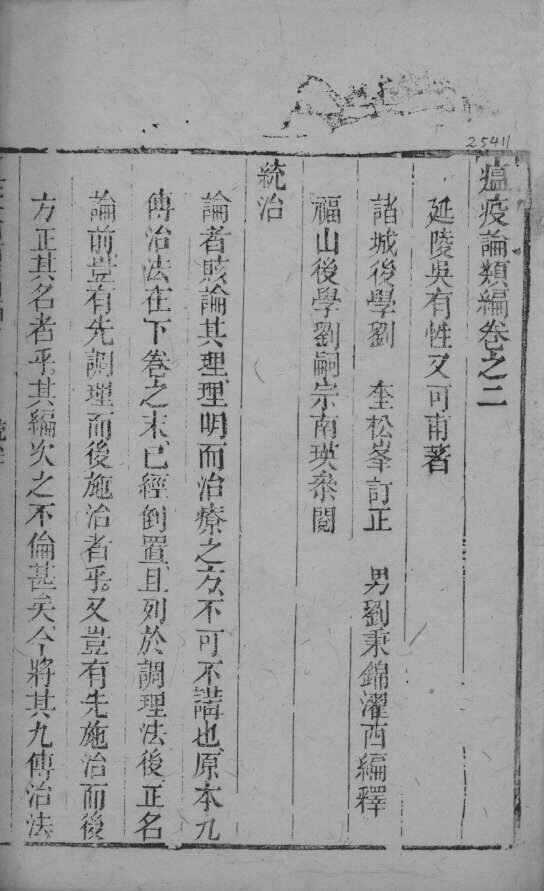 25411
瘟疫論類編卷之二
延陵吳有性又可甫著
諸城後學劉 奎松峯訂正 男劉秉錦濯西編釋
福山後學劉嗣宗南瑛叅閱
統治
論者賅論其理理明而治療之方不可不講也原本九
傳治法在下卷之末已經倒置且列於調理法後正名
論前豈有先調理而後施治者乎又豈有先施治而後
方正其名者乎其編次之不倫甚矣今將其九傳治法